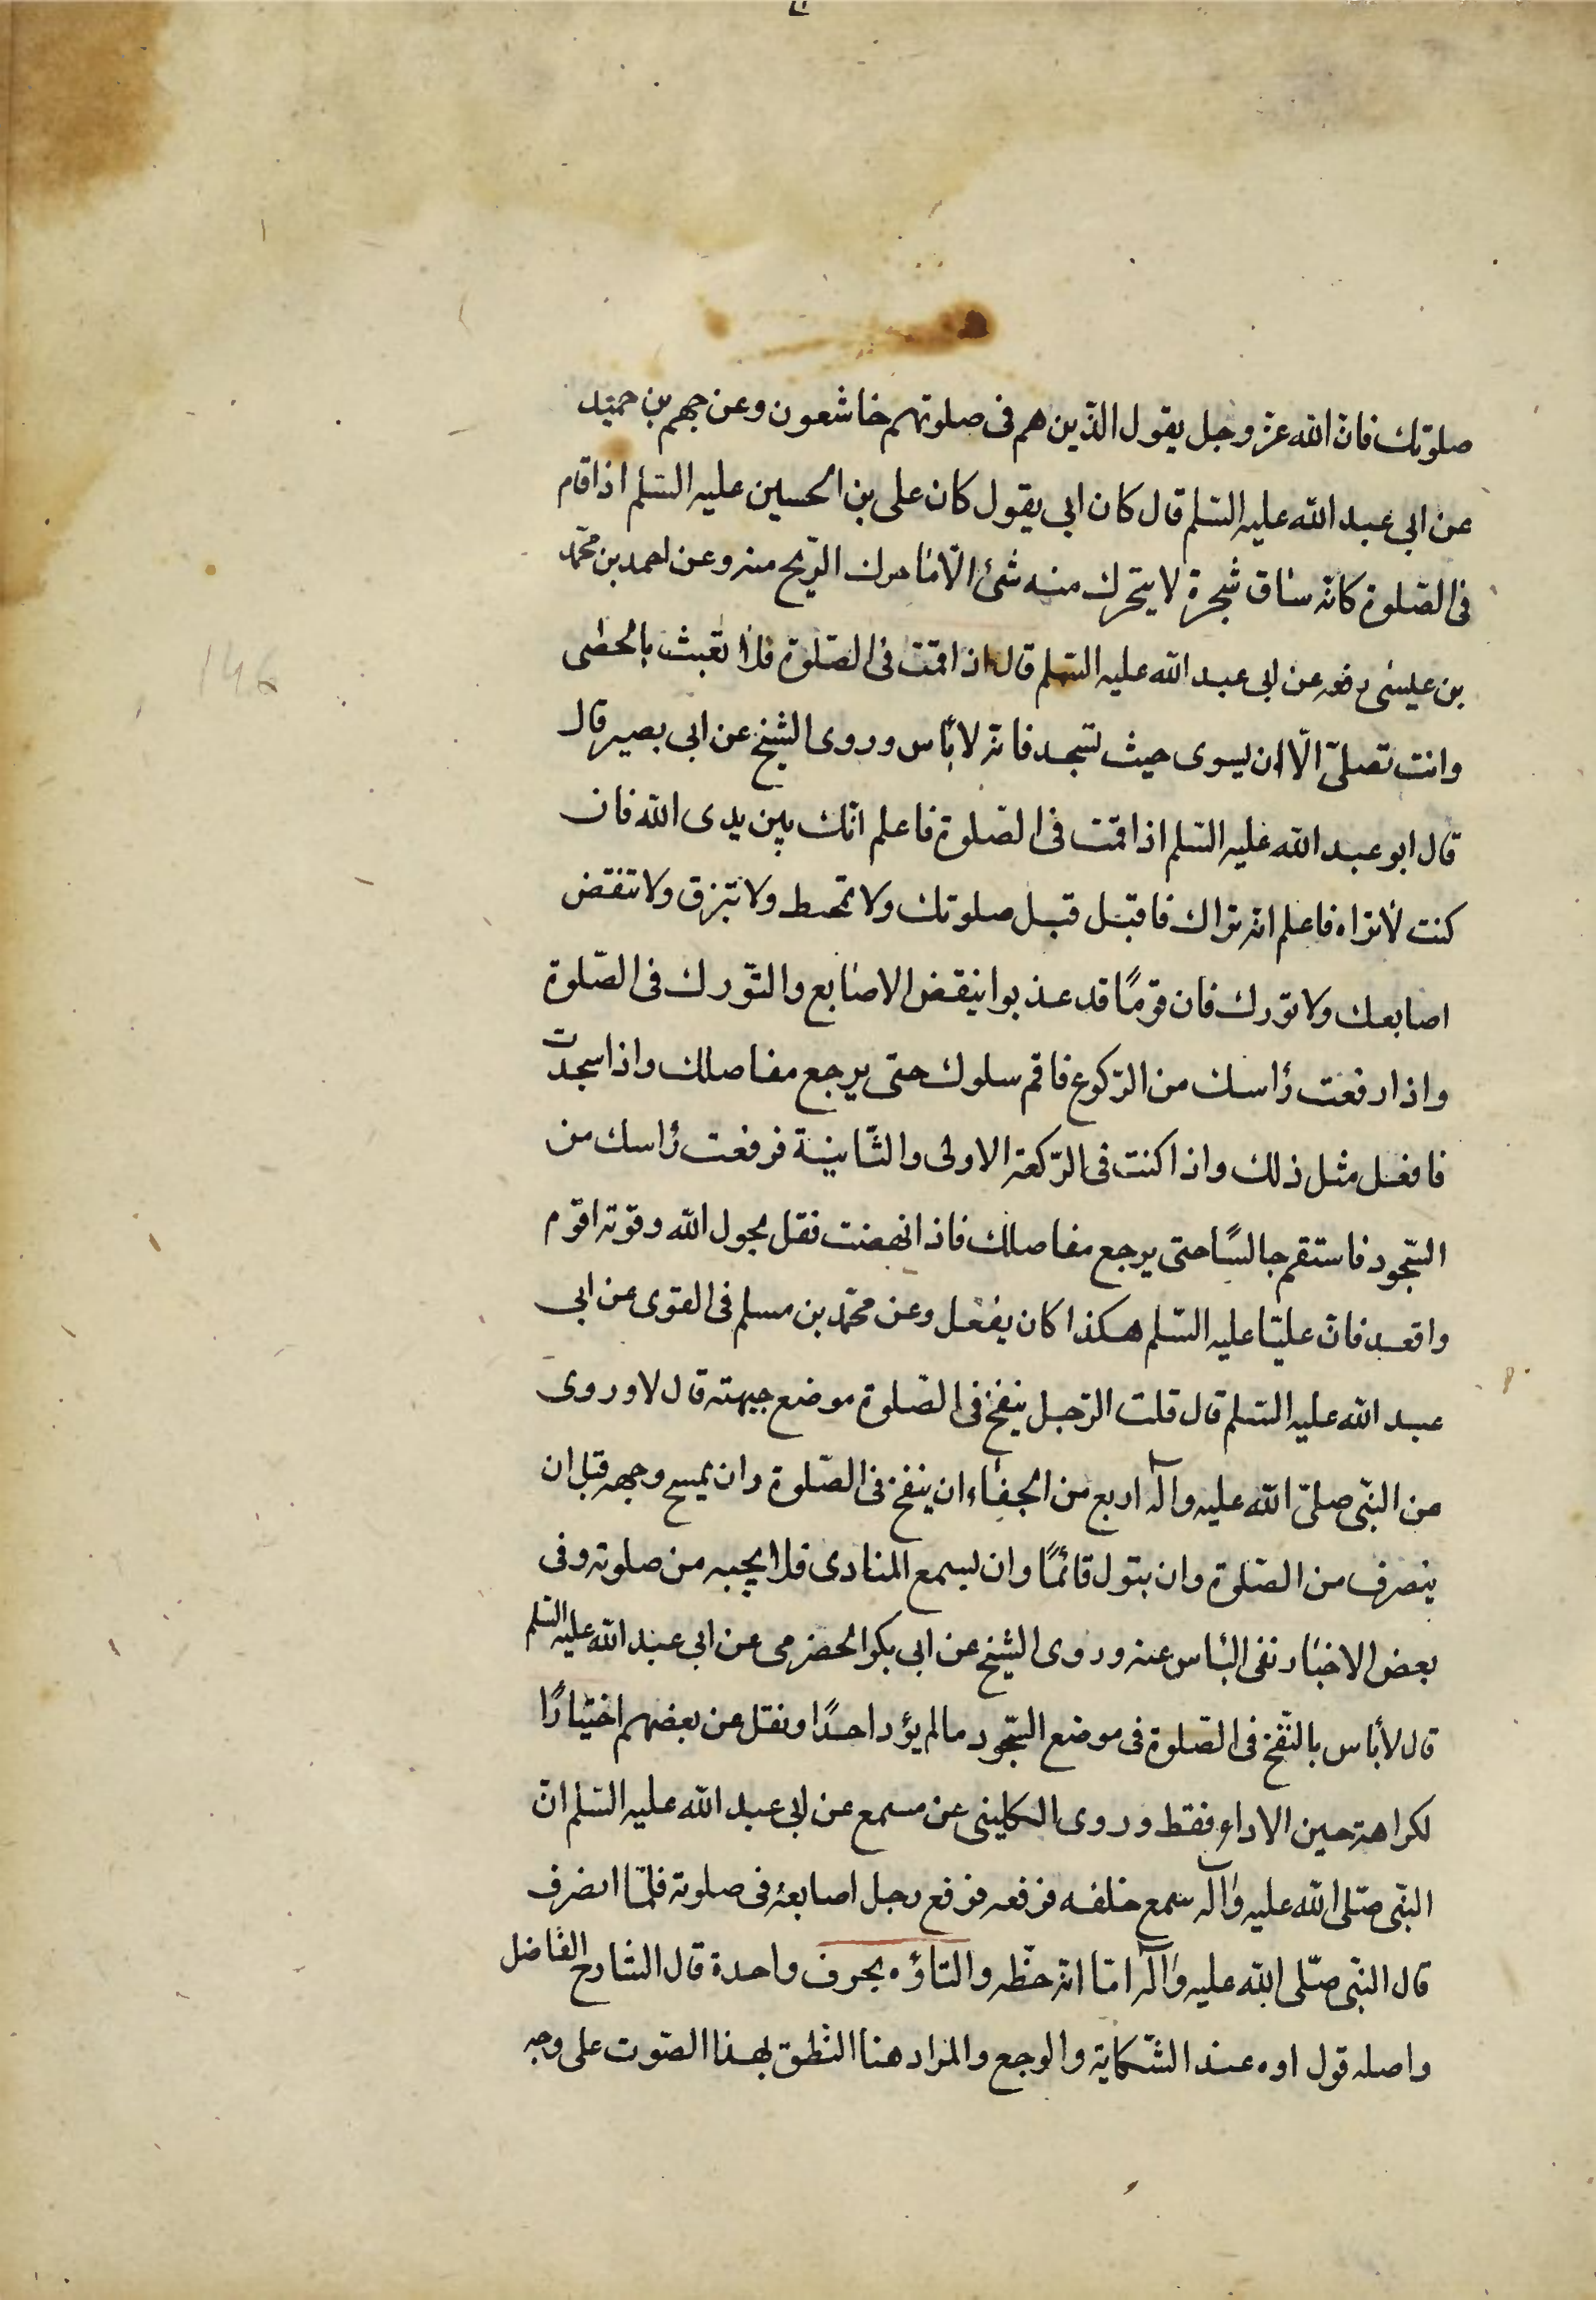 صلوتك فانّ الله عزّ وجل يقول الذّين هم فى صلوتهم خاشعون وعن جهم بن حميد
عن ابى عبد الله عليه السّلم قال كان ابى يقول كان على بن الحسين عليه السّلم اذا قام
فى الصّلوة كانّه ساق شجرة لا يتحرك منه شئ الّا ما حرك الرّيح منه وعن احمد بن محمّد
بن عيسى رفعه عن ابى عبد الله عليه السّلم قال اذا قمت فى الصّلوة فلا تعبث بالحصى
وانت تصلىّ الّا ان يسوى حيث تسجد فانّه لا باس وروى الشيخ عن ابى بصير قال
قال ابو عبد الله عليه السّلم اذا قمت فى الصّلوة فاعلم انّك بين يدى الله فان
كنت لا تراه فاعلم انّه يراك فاقبل قبل صلوتك ولا تمتخط ولا تبزق ولا تنقض
اصابعك ولا تورك فان قومًا قد عذبوا بنقض الاصابع والتّورك فى الصّلوة
واذا رفعت راسك من الرّكوع فاقم سلوك حتى يرجع مفاصلك واذا سجدت
فافعل مثل ذلك واذا كنت فى الرّكعة الاولى والثّانية فرفعت راسك من
السّجود فاستقم جالسًا حتى يرجع مفاصلك فاذا نهضت فقل بحول الله وقوته اقوم
واقعد فانّ عليّا عليه السّلم هكذا كان يفعل وعن محمّد بن مسلم فى القوى عن ابى
عبد الله عليه السّلم قال قلت الرّجل ينفخ فى الصّلوة موضع جبهته قال لا وروى
عن النّبى صلىّ الله عليه وآله اربع من الجفاء ان ينفخ فى الصّلوة وان يمسح وجهه قبل ان
ينصرف من الصّلوة وان يبول قائمًا وان يسمع المنادى فلا يجيبه من صلوته وفى
بعض الاخبار نفى الباس عنه وروى الشيخ عن ابى بكر الحضرمى عن ابى عبد الله عليه السّلم
قال لا باس بالنّفخ فى الصّلوة فى موضع السّجود ما لم يؤد احدًا ونقل عن بعضهم اختيارًا
لكراهة حين الاداء فقط وروى الكلينى عن مسمع عن ابى عبد الله عليه السّلم انّ
النّبى صلّى الله عليه وآله سمع خلفه فرقعه فرقع رجل اصابعه فى صلوته فلمّا انصرف
قال النّبى صلّى الله عليه وآله امّا انّه حظّه والتاؤه بحرف واحدة قال الشارح الفاضل
واصله قول اوه عند الشّكاية والوجع والمراد هنا النّطق بهذا الصّوت على وجه
146